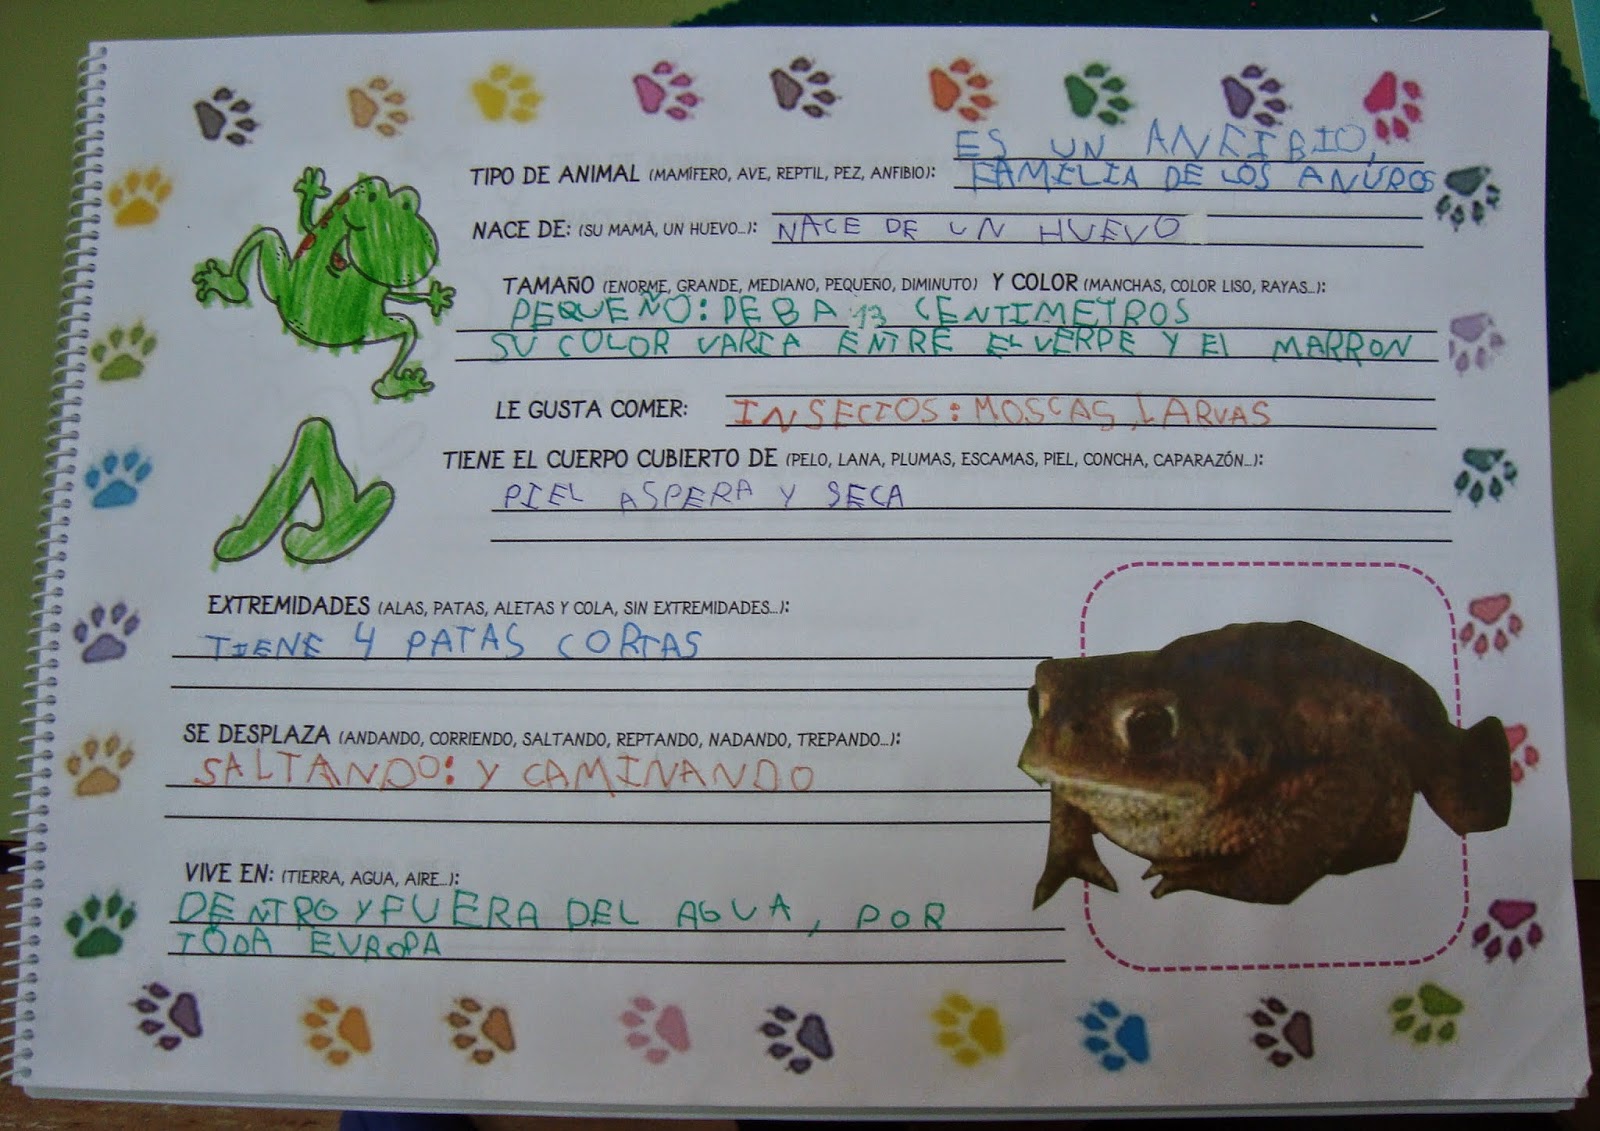 ES UN ANFIBIO,
TIPO DE ANIMAL (MAMÍFERO, AVE, REPTIL, PEZ, ANFIBIO): FAMILIA DE LOS ANUROS
NACE DE: (SU MAMÁ, UN HUEVO...): NACE DE UN HUEVO
TAMAÑO (ENORME, GRANDE, MEDIANO, PEQUEÑO, DIMINUTO) Y COLOR (MANCHAS, COLOR LISO, RAYAS...):
PEQUEÑO: DE 8 A 13 CENTIMETROS
SU COLOR VARIA ENTRE EL VERDE Y El MARRON
LE GUSTA COMER: INSECTOS: MOSCAS, LARVAS
TIENE EL CUERPO CUBIERTO DE (PELO, LANA, PLUMAS, ESCAMAS, PIEL, CONCHA, CAPARAZÓN...):
PIEL ASPERA Y SECA
EXTREMIDADES (ALAS, PATAS, ALETAS Y COLA, SIN EXTREMIDADES...):
TIENE 4 PATAS CORTAS
SE DESPLAZA (ANDANDO, CORRIENDO, SALTANDO, REPTANDO, NADANDO, TREPANDO...):
SALTANDO: Y CAMINANDO
VIVE EN: (TIERRA, AGUA, AIRE...):
DENTRO Y FUERA DEL AGUA, POR
TODA EUROPA